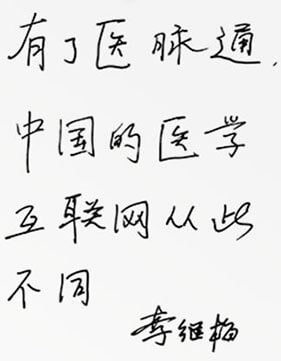 有了医脉通,
中国的医学
互联网从此
不同
李继梅